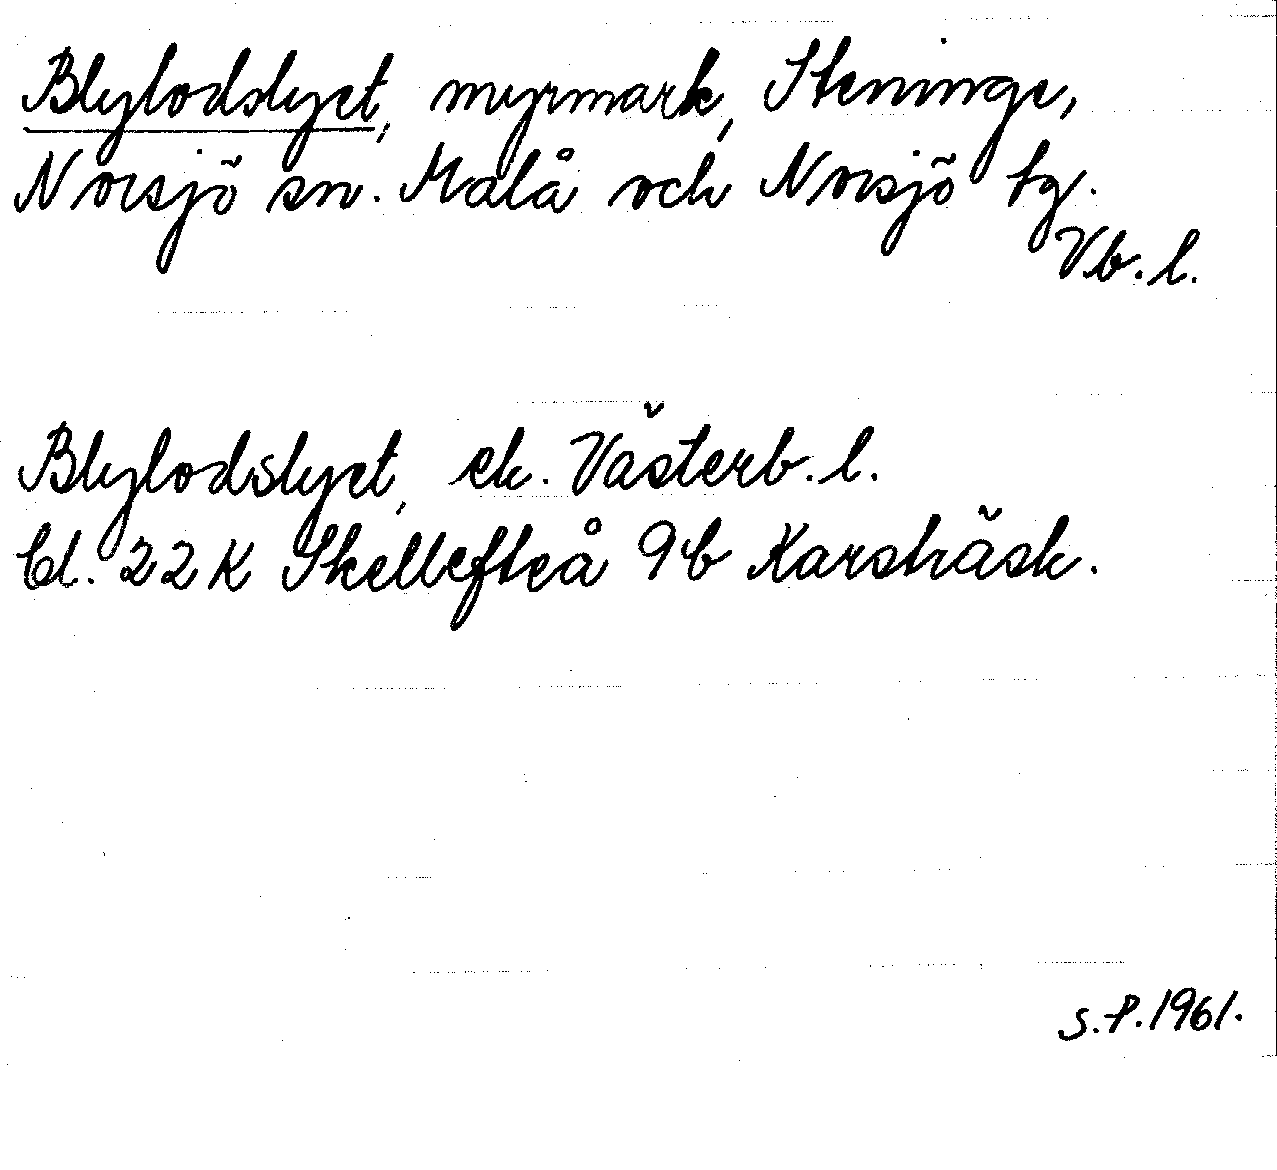 Blylodslyet, myrmark, Steninge,
Norsjö sn. Malå och Norsjö tg.
Vb. l.
Blylodslyet, ek. Västerb. l.
bl. 22 K Skellefteå 9b Karsträsk.
S. P. 1961.